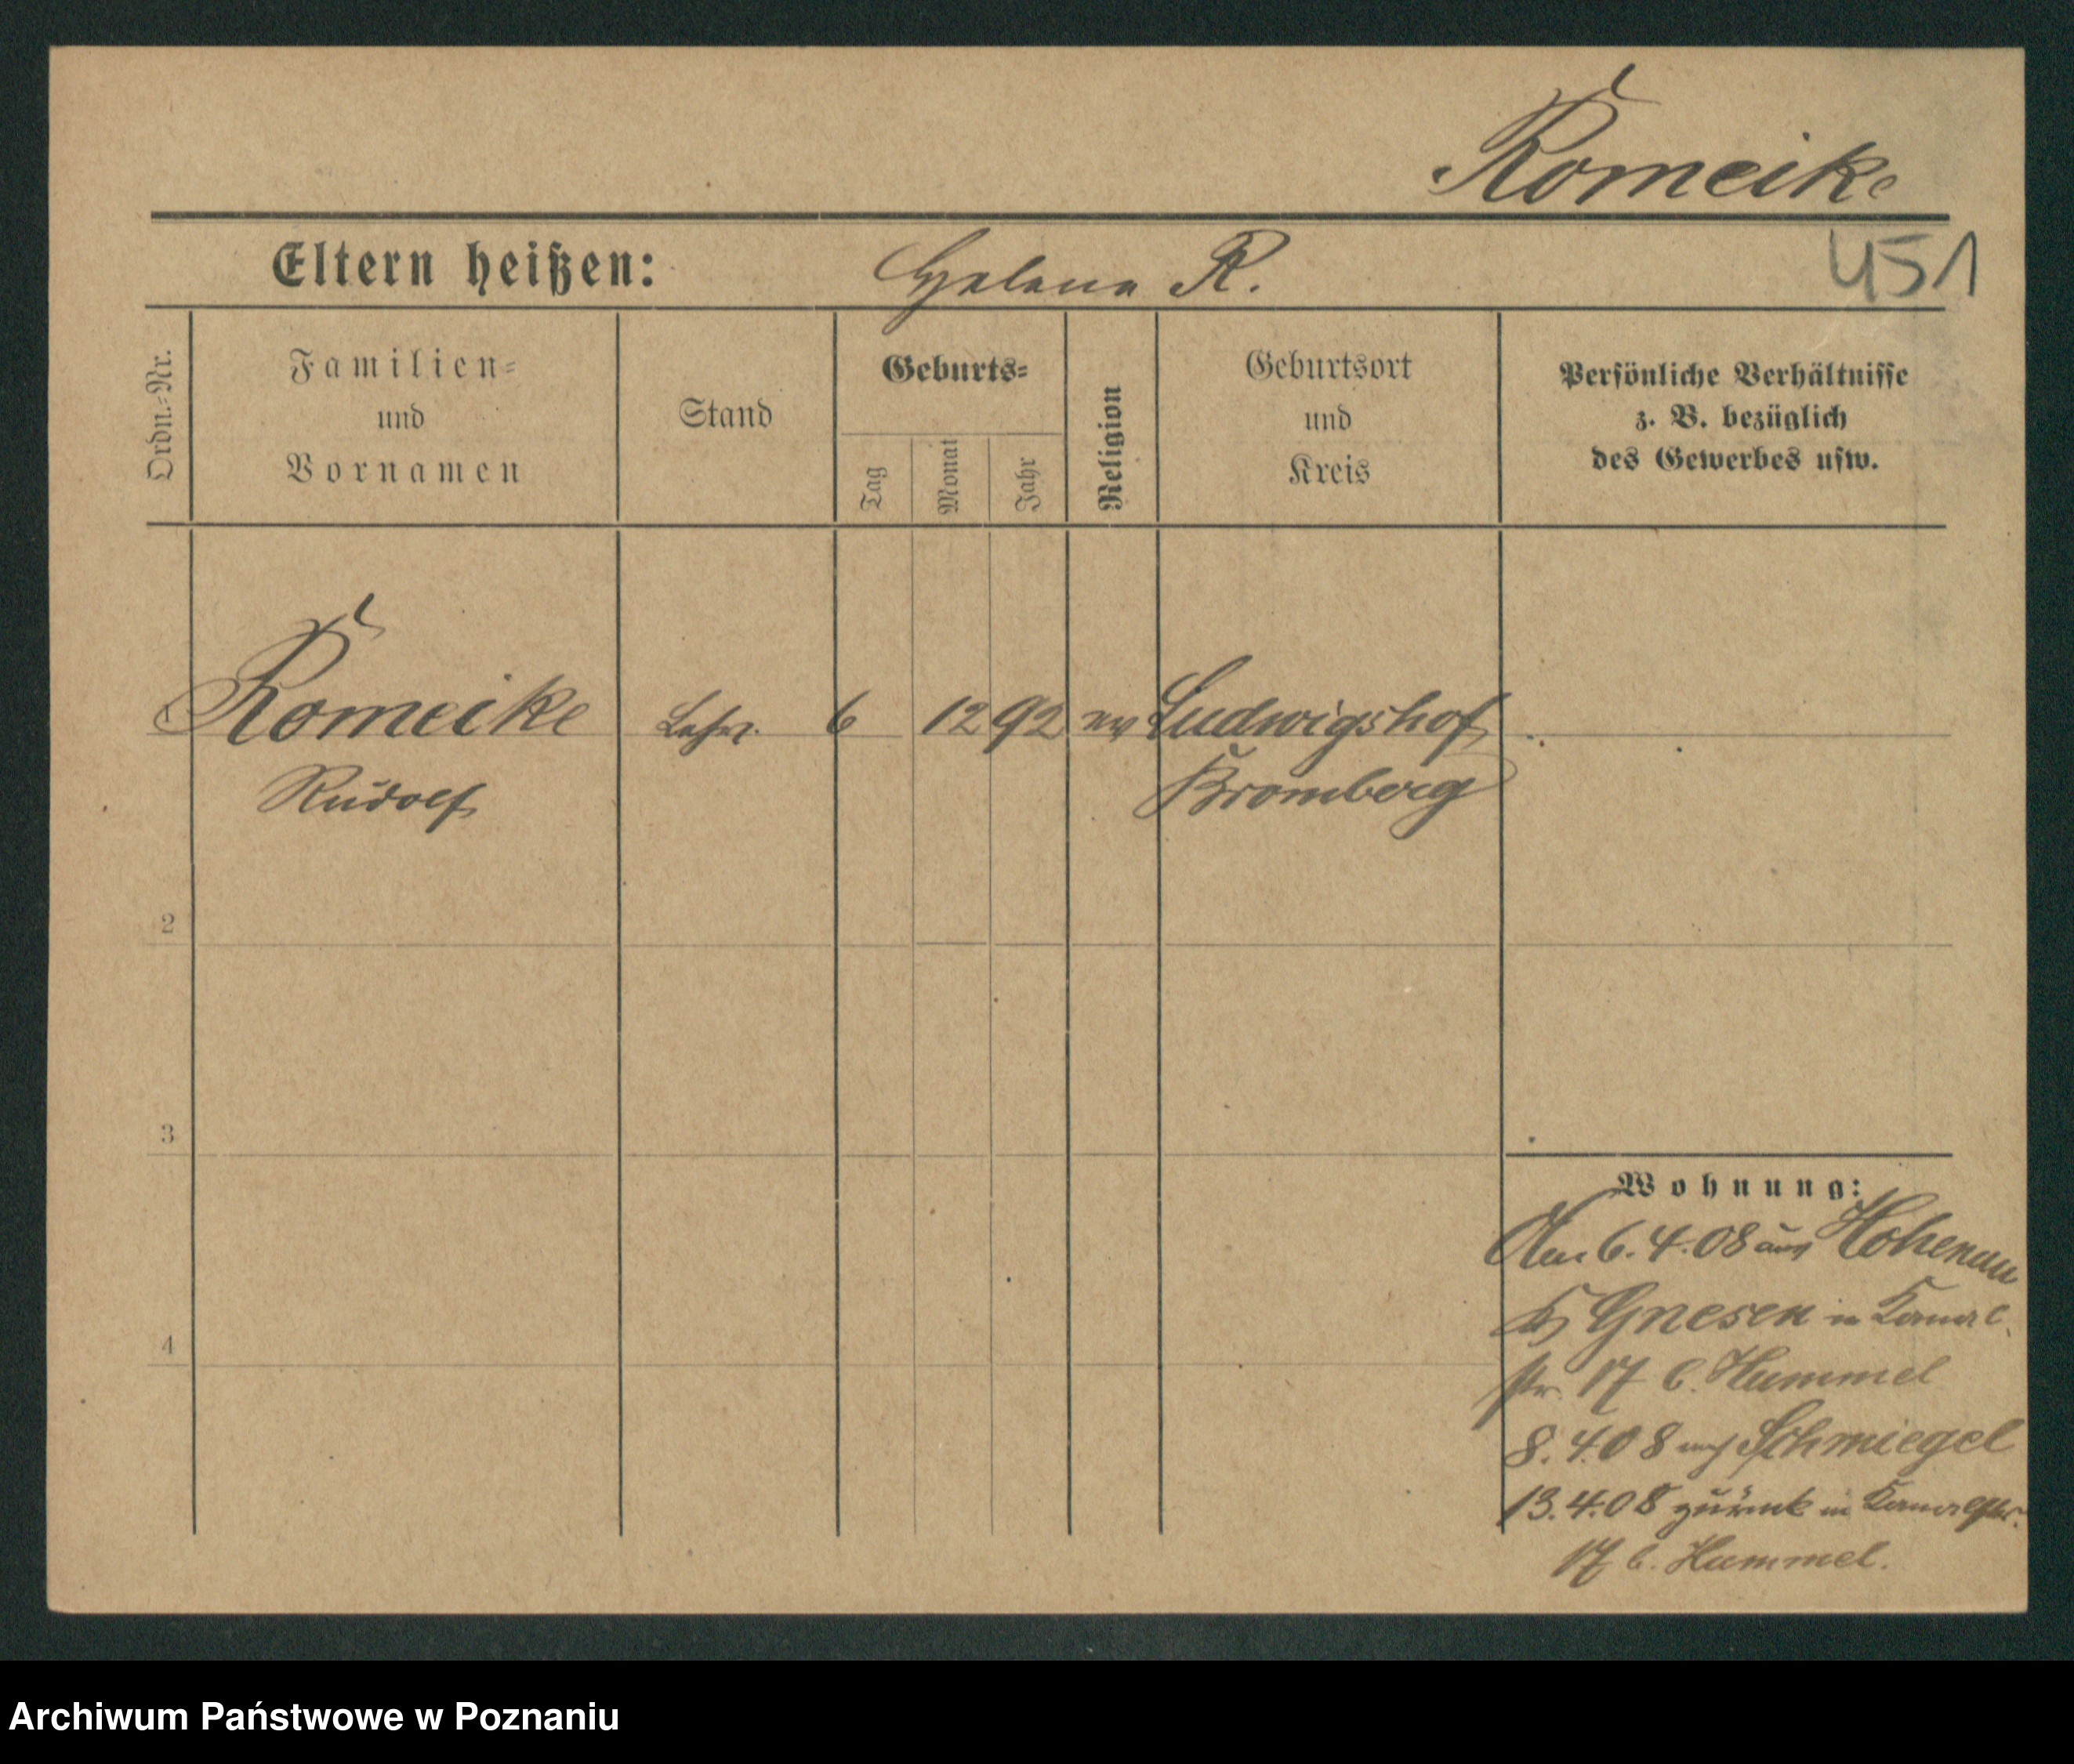 Romeike
Eltern heißen: Helene R.
451
Ordn.-Nr.
Familien-
und
Vornamen
Stand
Geburts-
Tag
Monat
Jahr
Religion
Geburtsort
und
Kreis
Persönliche Verhältnisse
z. B. bezüglich
des Gewerbes usw.
1 Romeike Lehrl. 6 12 92 ev Ludwigshof
Rudolf Bromberg
2
3
4
Wohnung:
6.4.08 aus Hohenau
Gnesen in Kanal
str. 17 b. Hummel
8.4.08 nach Schmiegel
13.4.08 zurück in Kanalstr.
17 b. Hummel.
Archiwum Państwowe w Poznaniu